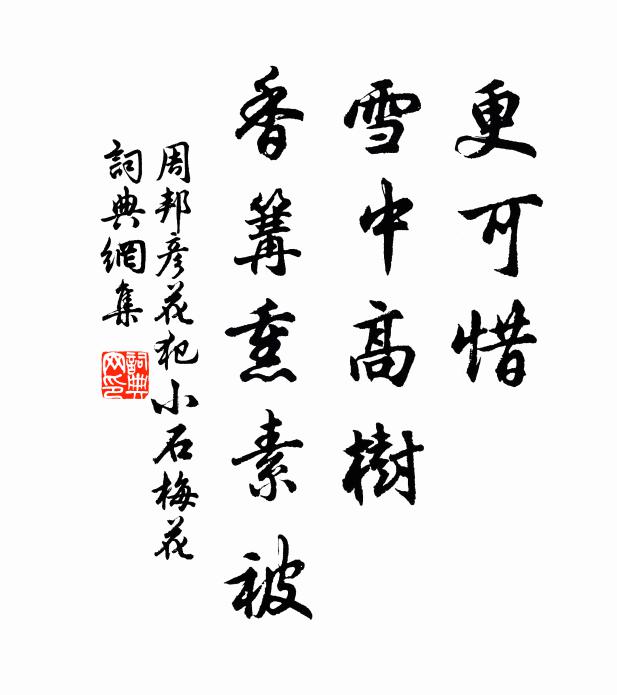 更可惜
雪中高樹
香篝熏素被
周邦彥花犯小石梅花
詞典網集
詞典網印